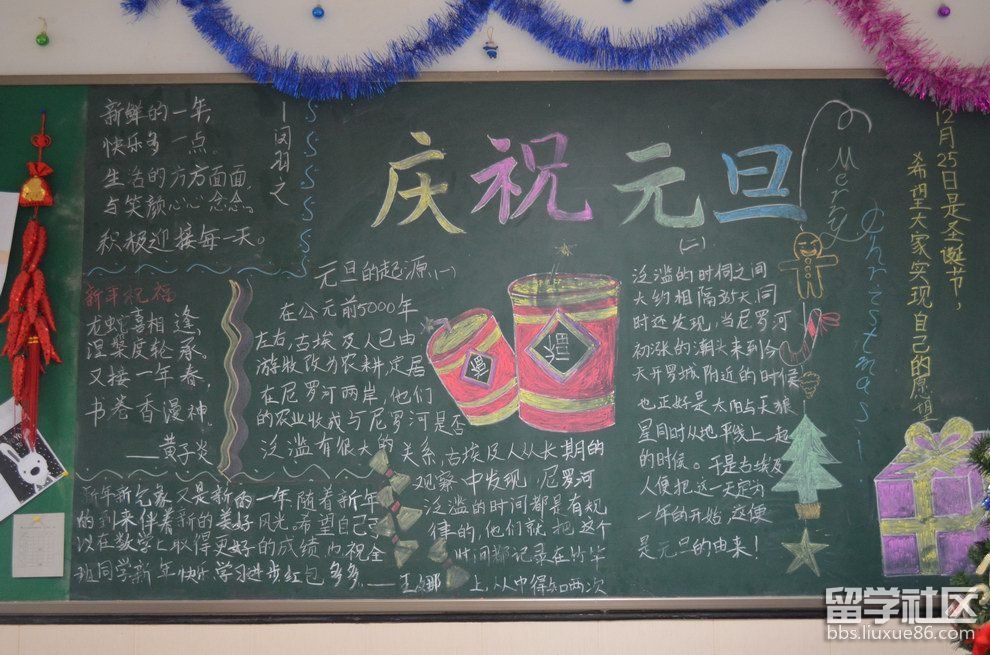 庆祝元旦
新鲜的一年,
快乐多一点。
生活的方方面面,
与笑颜心心念念。
积极迎接每一天。
新年祝福
龙蛇喜相逢,
涅槃度轮承,
又接一年春,
书卷香漫神
——黄子炎
新年新气象又是新的一年随着新年
的到来伴着新的美好风光.希望自己
以在数学上取得更好的成绩.祝全
班同学新年快乐,学习进步红包多多.——王娜
元旦的起源(一)
在公元前5000年
左右,古埃及人已由
游牧改为农耕,定居
在尼罗河两岸,他们
的农业收成与尼罗河是否
泛滥有很大的关系,古埃及人从长期的
观察中发现,尼罗河
泛滥的时间都是有规
律的,他们就把这个
时间都记录在竹竿
上,从中得知两次
(二)
泛滥的时间之间
大约相隔365天同
时还发现,当尼罗河
初涨的潮头来到今
天开罗城附近的时候
也正好是太阳与天狼
星同时从地平线上一起
的时候。于是古埃及
人便把这一天定为
一年的开始,这便
是元旦的由来!
Merry
Christmas!
12月25日是圣诞节,
希望大家实现自己的愿
福
福
留学社区
bbs.liuxue86.com